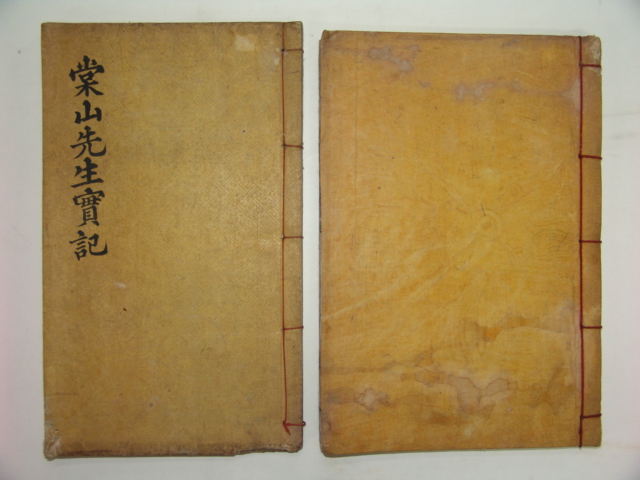 棠山先生實記